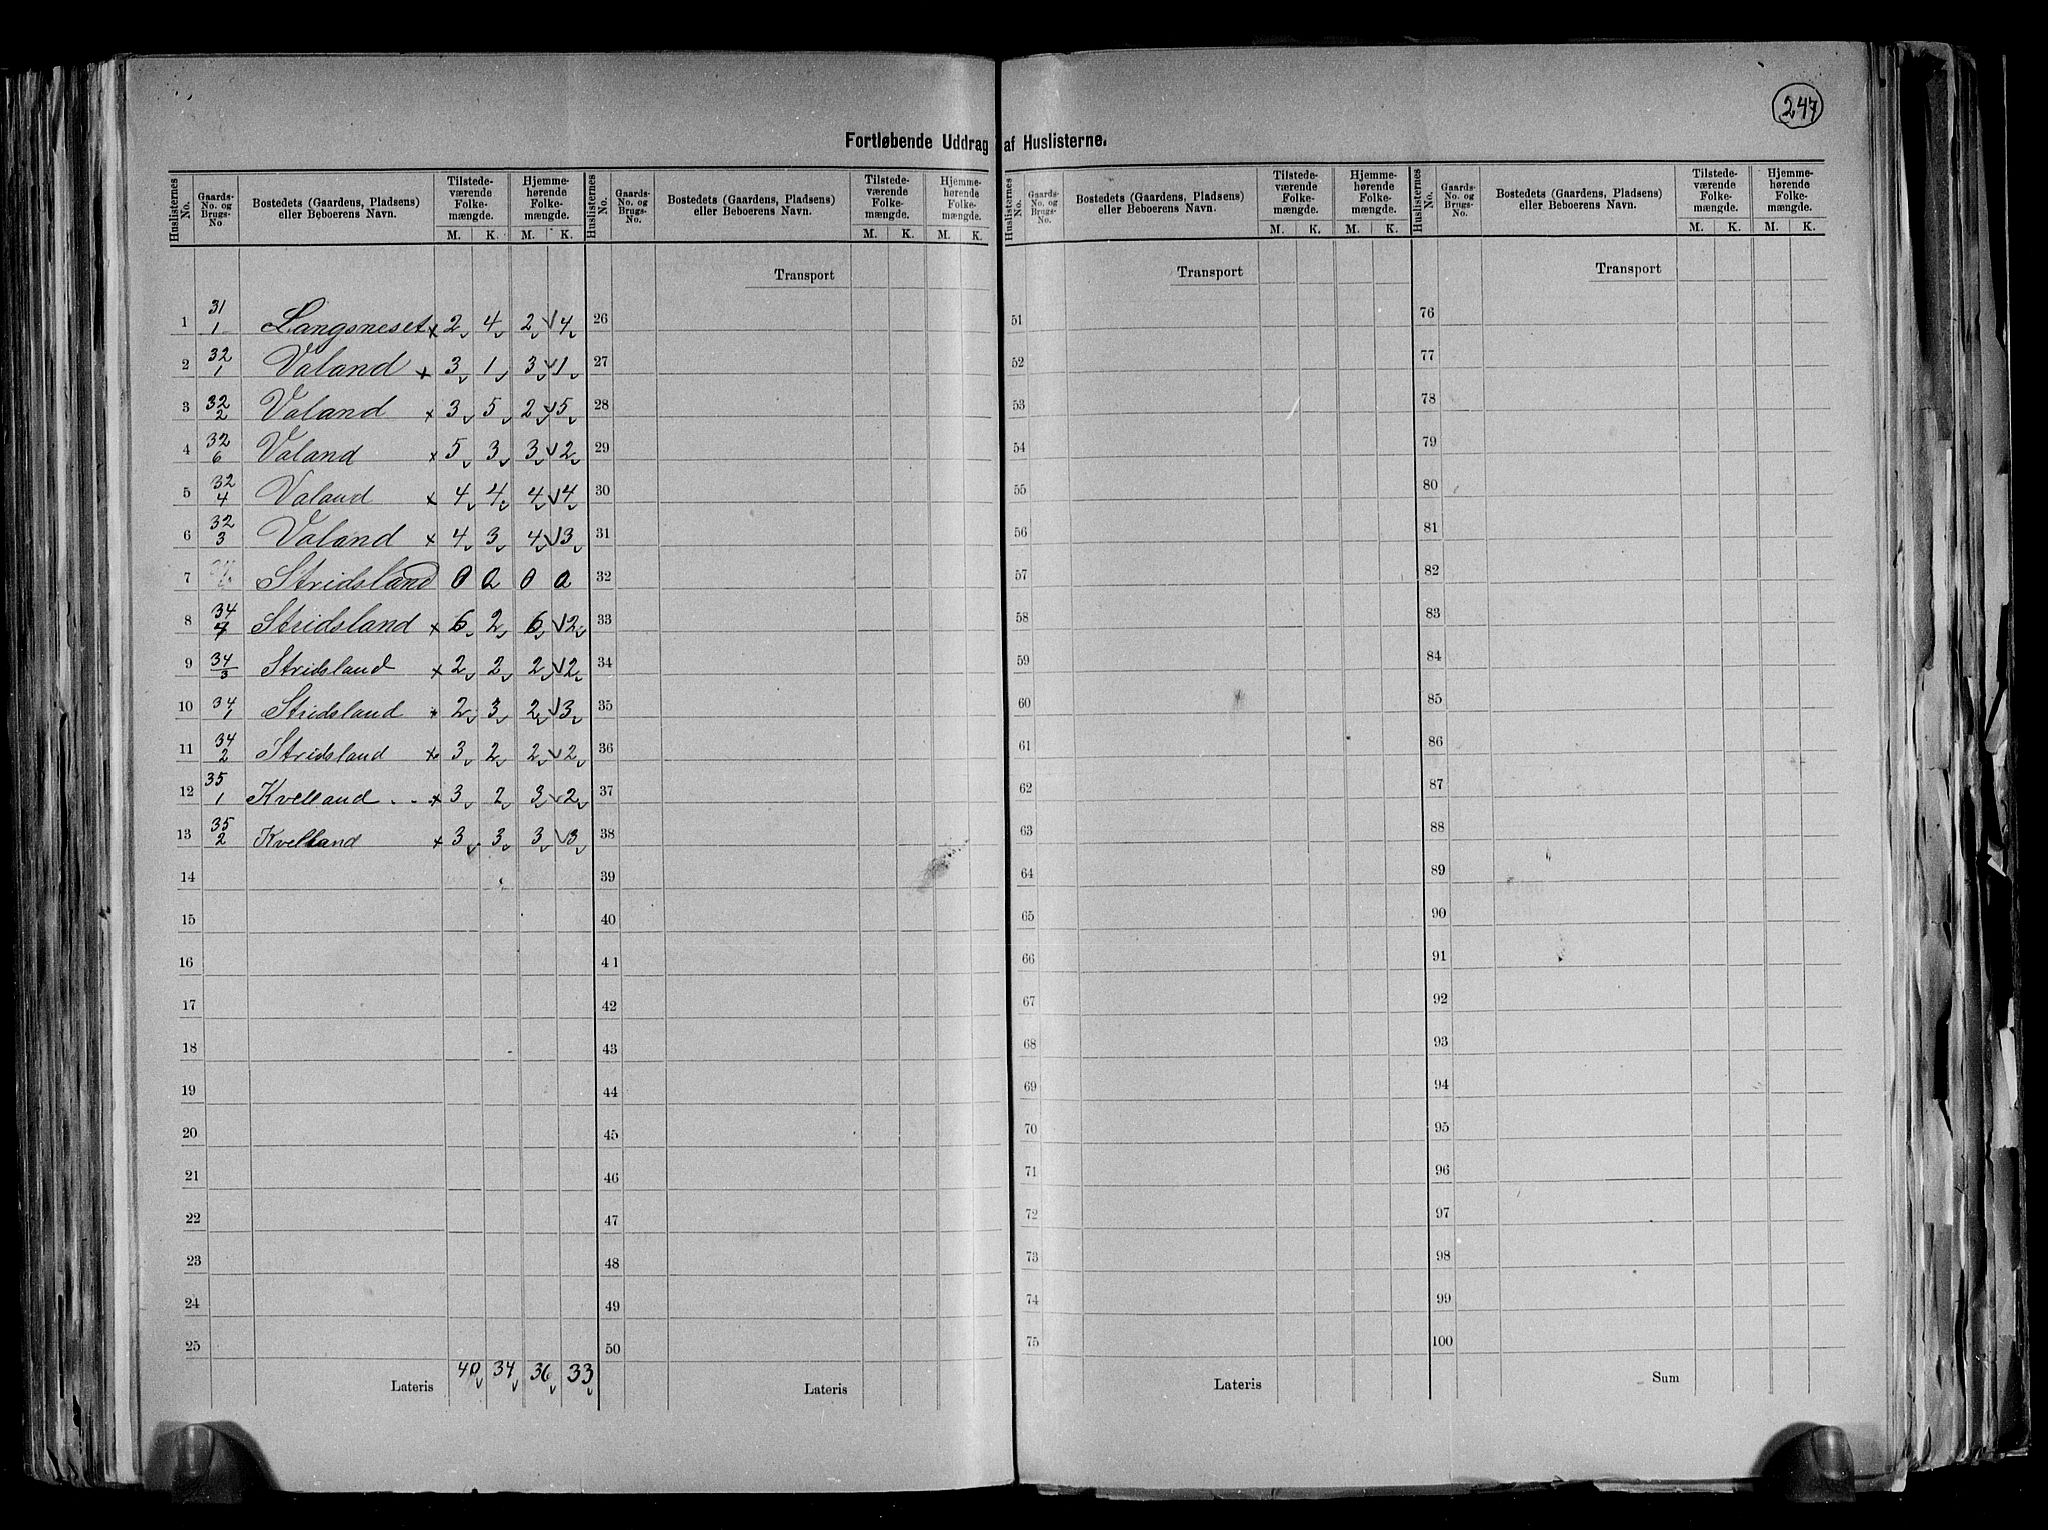 247
Fortløbende Uddrag af Huslisterne.
Huslisternes No. Gaards-No. og Brugs-No. Bostedets (Gaardens, Pladsens) eller Beboerens Navn. Tilstedeværende Folkemængde. M. K. Hjemmehørende Folkemængde. M. K.
Huslisternes No. Gaards-No. og Brugs-No. Bostedets (Gaardens, Pladsens) eller Beboerens Navn. Tilstedeværende Folkemængde. M. K. Hjemmehørende Folkemængde. M. K.
Huslisternes No. Gaards-No. og Brugs-No. Bostedets (Gaardens, Pladsens) eller Beboerens Navn. Tilstedeværende Folkemængde. M. K. Hjemmehørende Folkemængde. M. K.
Huslisternes No. Gaards-No. og Brugs-No. Bostedets (Gaardens, Pladsens) eller Beboerens Navn. Tilstedeværende Folkemængde. M. K. Hjemmehørende Folkemængde. M. K.
Transport Transport Transport
1 31/1 Langsneset x 2 4 2 4 26 51 76
2 32/1 Valand x 3 1 3 1 27 52 77
3 32/2 Valand x 3 5 2 5 28 53 78
4 32/6 Valand x 5 3 3 2 29 54 79
5 32/4 Valand x 4 4 4 4 30 55 80
6 32/3 Valand x 4 3 4 3 31 56 81
7 Stridsland 0 0 0 0 32 57 82
8 34/4 Stridsland x 6 2 6 2 33 58 83
9 34/3 Stridsland x 2 2 2 2 34 59 84
10 34/1 Stridsland x 2 3 2 3 35 60 85
11 34/2 Stridsland x 3 2 2 2 36 61 86
12 35/1 Kvelland x 3 2 3 2 37 62 87
13 35/2 Kvelland x 3 3 3 3 38 63 88
14 39 64 89
15 40 65 90
16 41 66 91
17 42 67 92
18 43 68 93
19 44 69 94
20 45 70 95
21 46 71 96
22 47 72 97
23 48 73 98
24 49 74 99
25 50 75 100
Lateris 40 34 36 33 Lateris Lateris Sum